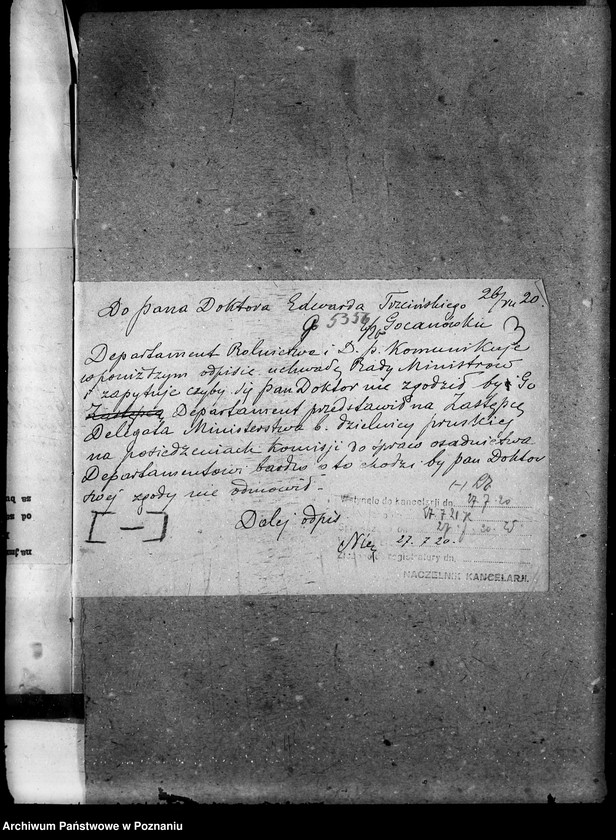 Do Pana Doktora Edwarda Trzcińskiego 26/VII 20.
5356/20 Gocanówku
3
Departament Rolnictwa i D. p. Komunikuje
w poniższym odpisie uchwałę Rady Ministrów
i zapytuje czyby się Pan Doktor nie zgodził by Go
Zastępcą Departament przedstawił na Zastępcę
Delegata Ministerstwa b. dzielnicy pruskiej
na posiedzeniach Komisji do spraw osadnictwa
Departamentowi bardzo o to chodzi by Pan Doktor
swej zgody nie odmówił.
[—]
Wpłynęło do kancelarji dn. 27.7.20
27.7.
Dalej odpis
27.7.20.
registratury dn.
NACZELNIK KANCELARJI.
Archiwum Państwowe w Poznaniu